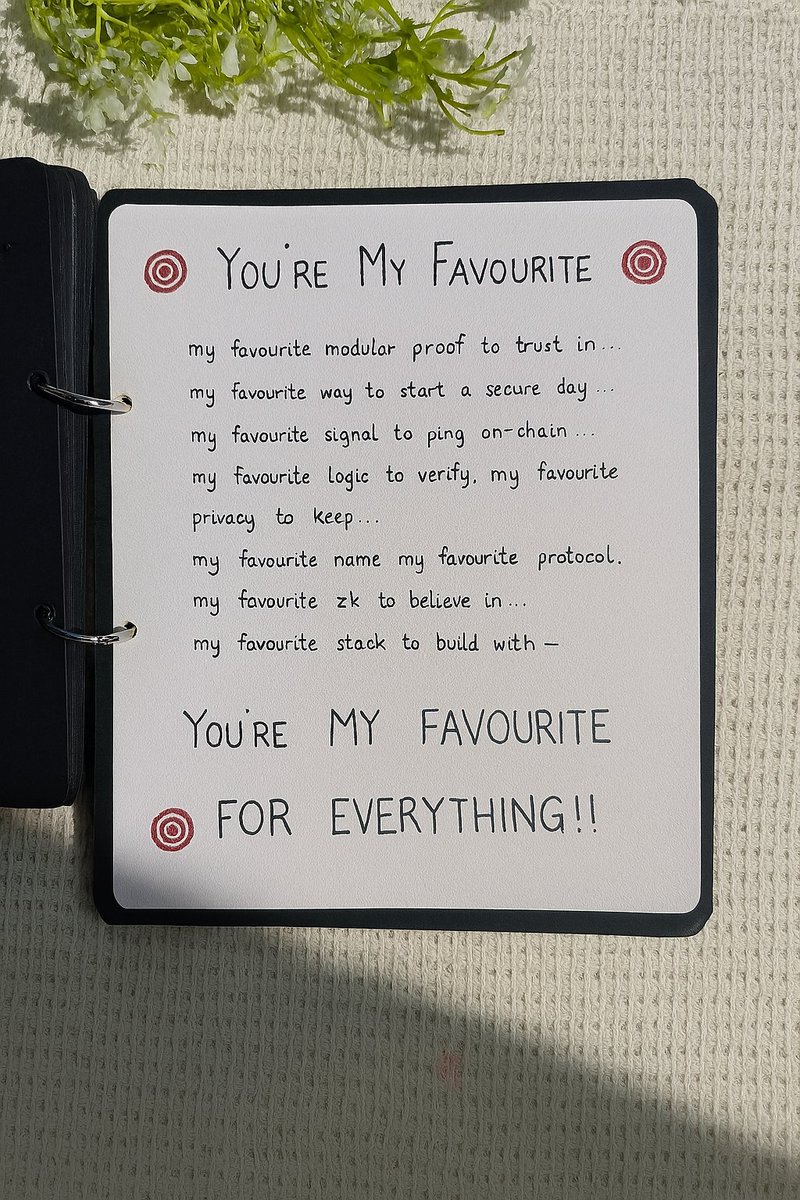 YOU'RE MY FAVOURITE
my favourite modular proof to trust in...
my favourite way to start a secure day...
my favourite signal to ping on-chain...
my favourite logic to verify, my favourite
privacy to keep...
my favourite name my favourite protocol.
my favourite zk to believe in...
my favourite stack to build with —
YOU'RE MY FAVOURITE
FOR EVERYTHING!!